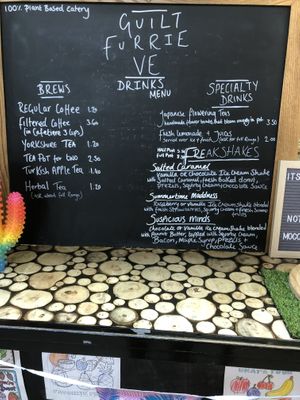 100% Plant Based Eatery
GUILT
FURRIE
VE
DRINKS
MENU
BREWS
REGULAR COFFEE 1.20
Filtered Coffee 3.60
(in Cafetiere 3 Cups)
YORKSHIRE TEA 1.20
TEA POT for two 2.50
Turkish Apple Tea 1.40
Herbal Tea 1.20
(ask about full Range)
SPECIALTY
DRINKS
Japanese Flowering Teas
handmade flower that bloom 3.50
Fresh Lemonade + Juices
(ask for full Range) 2.00
FREAKSHAKES
Salted Caramel
Vanilla or Chocolate Ice Cream Shake
with Salted Caramel, fresh Baked donut
Pretzels, Squirty Cream + chocolate Sauce
Summertime Maddness
Raspberry or Vanilla Ice Cream Shake blended
with fresh Strawberries, Squirty Cream +
Suspicious Minds
Chocolate or Vanilla Ice Cream Shake blended
with Peanut Butter, topped with Squirty Cream
Bacon, Maple Syrup, pretzels +
chocolate Sauce
IT'S
NOT
MOO